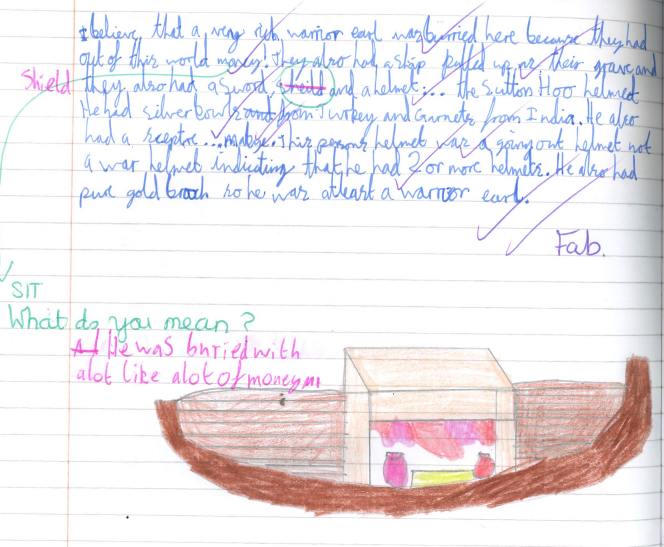 I believe, that a very rich warrior earl was burried here because they had
out of this world money. They also had a ship pulled up on their grave and
Shield they also had a sword, sheild and a helmet:... the Sutton Hoo helmed
He had silver bowls and from Turkey and Garnets from India. He also
had a sceptre... maybe. This persons helmet was a going out helmet not
a war helmet indicating that he had 2 or more helmets. He also had
pure gold broach so he was atleast a warrior earl.
Fab.
SIT
What do you mean?
He was buried with
alot like alot of money